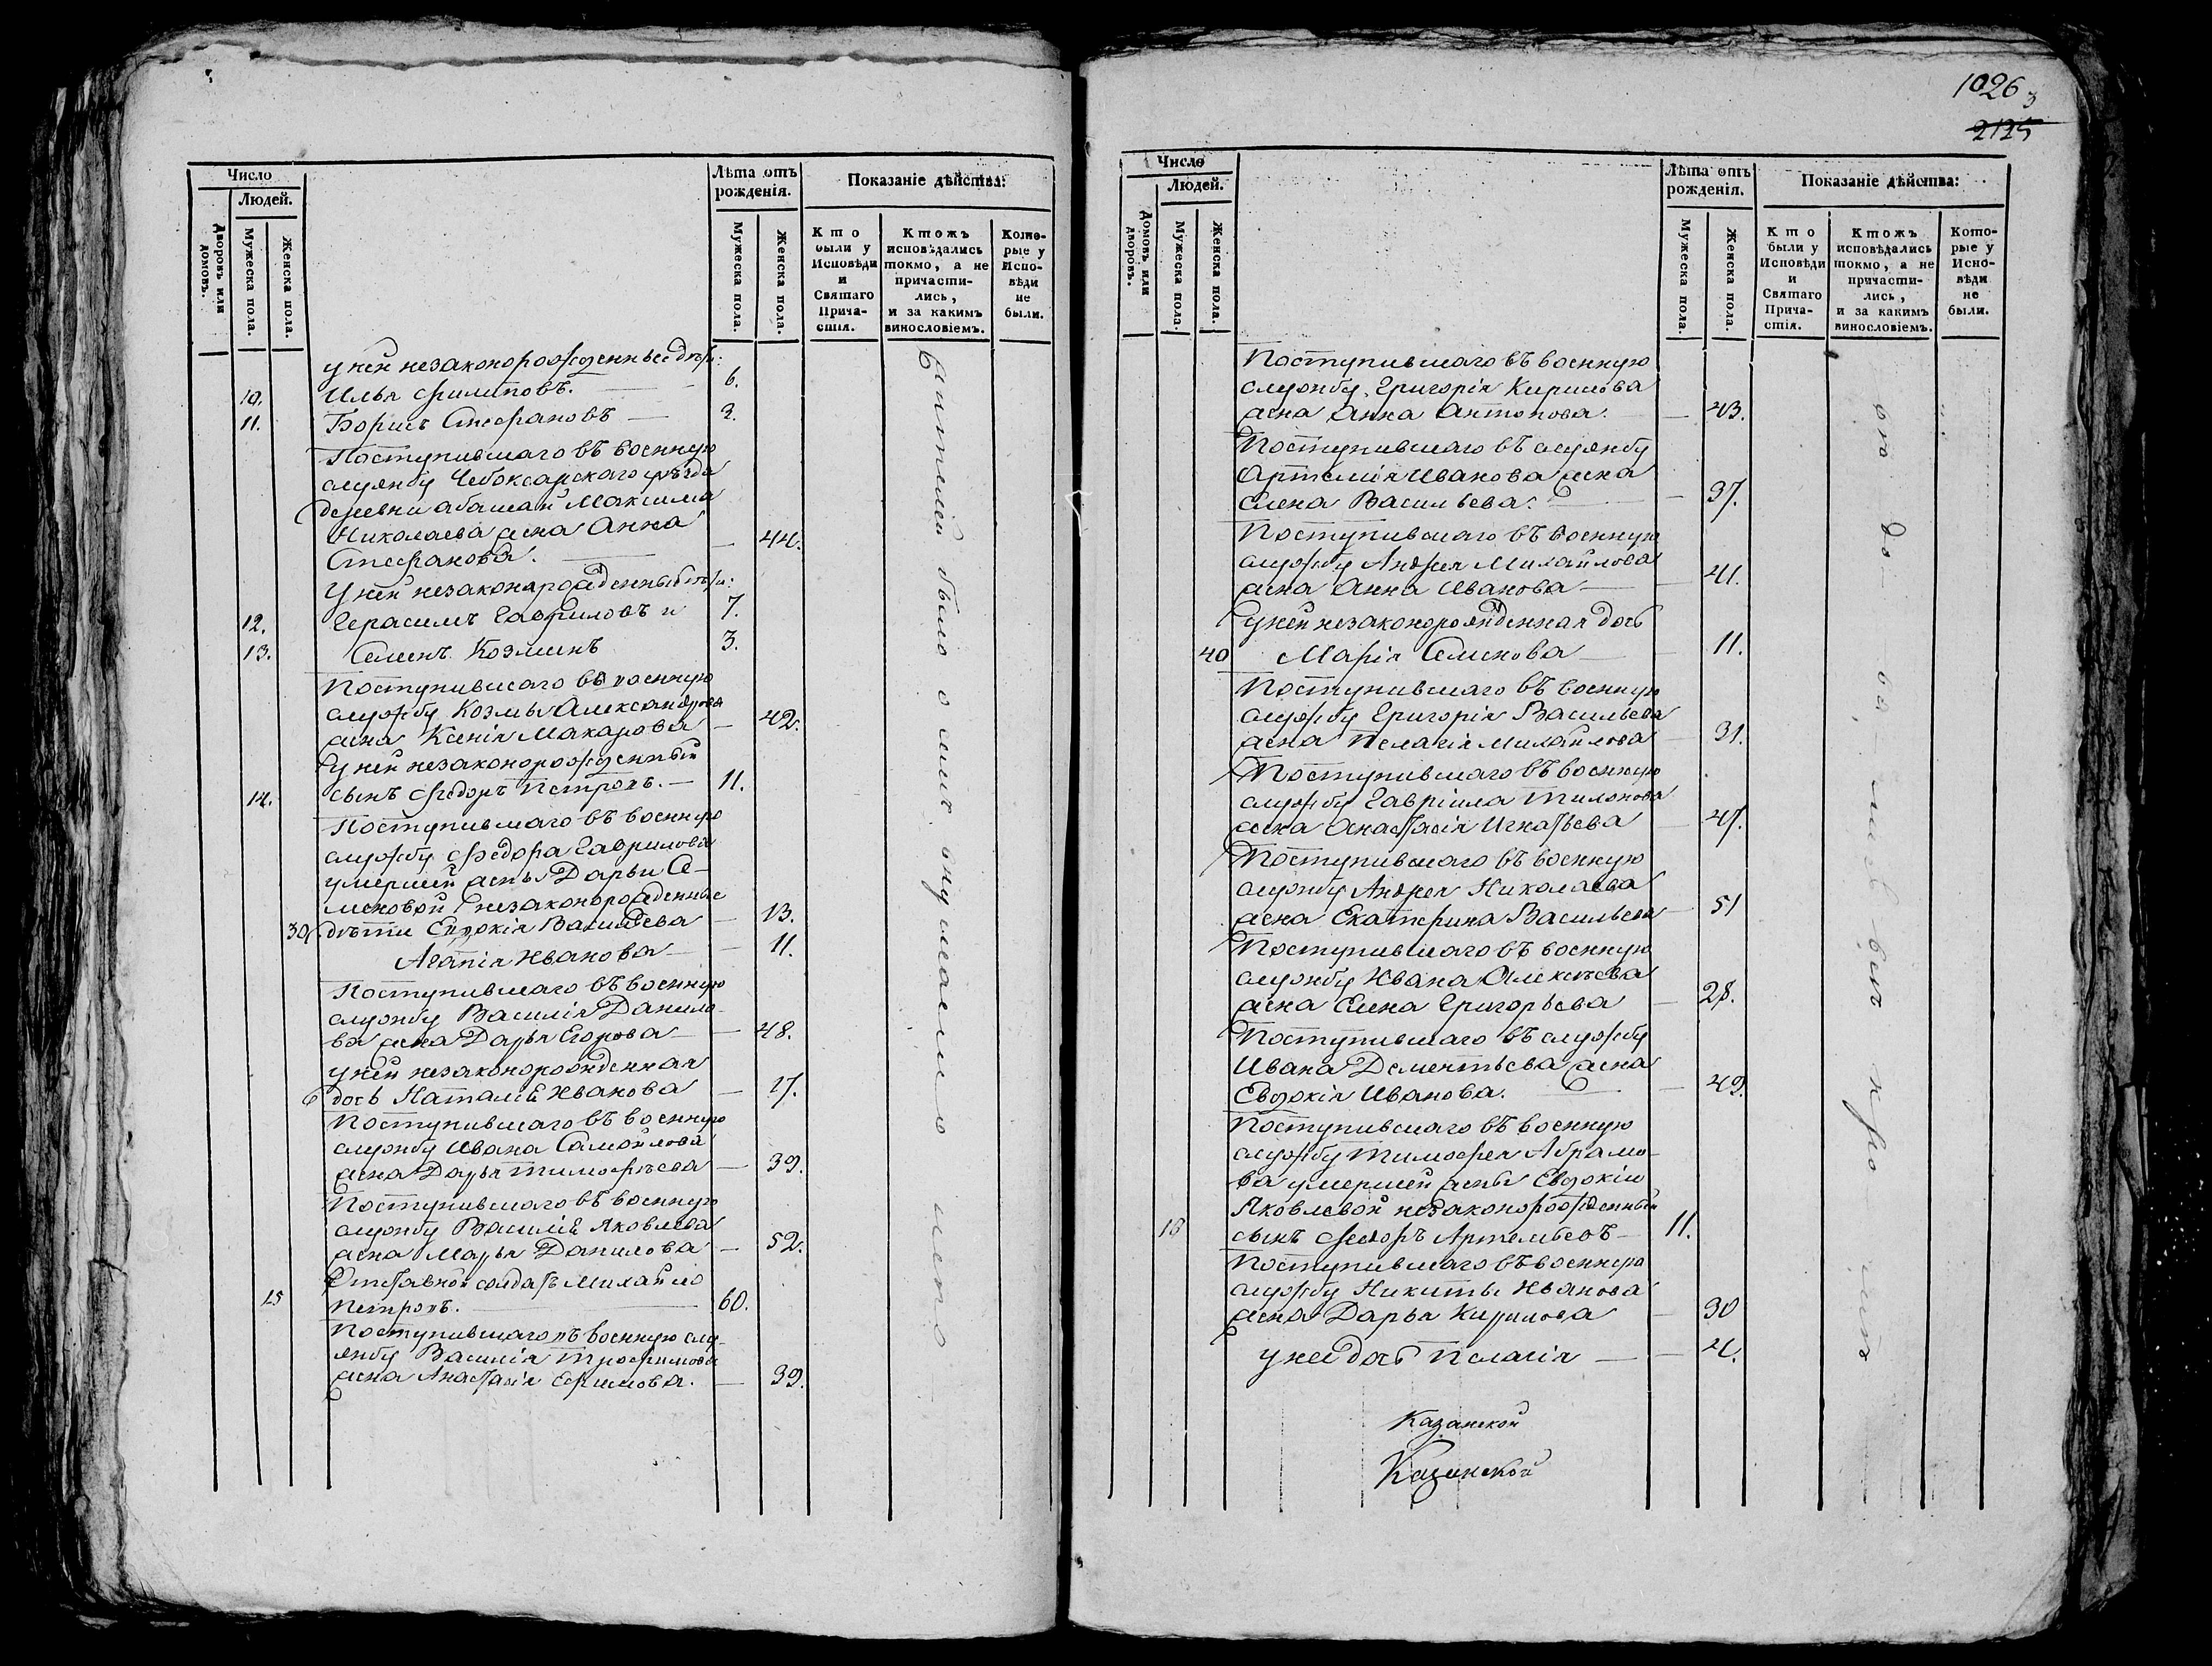 Число
Людей.
Дворовъ или домовъ.
Мужеска пола.
Женска пола.
Лѣта отъ рожденія.
Мужеска пола.
Женска пола.
Показаніе дѣйства:
Кто были у Исповѣди и Святаго Прича-стія.
Ктожъ исповѣдались токмо, а не причасти-лись, и за какимъ винословіемъ.
Кото-рые у Испо-вѣди не были.
у ней незаконорожденные дѣти:
10. Илья Филиповъ. 6.
11. Борисъ Стефановъ — 2.
Поступившаго въ военную
службу Чебоксарскаго уѣзда
деревни Абашай Максима
Николаева жена Анна
Стефанова. — 44.
У ней незаконорожденные дѣти:
12. Герасимъ Гавриловъ и 7.
13. Семенъ Козминъ 3.
Поступившаго въ военную
службу Козмы Александрова
жена Ксенія Макарова — 42.
у ней незаконорожденный
14. сынъ Федоръ Петровъ. — 11.
Поступившаго въ военную
службу Федора Гаврилова
умершей жены Дарьи Се-
меновой незаконорожденные
39. дѣти Евдокія Васильева — 13.
Агапія Иванова — 11.
Поступившаго въ военную
службу Василія Данило-
ва жена Дарья Егорова — 48.
у ней незаконорожденная
дочь Наталія Иванова — 17.
Поступившаго въ военную
службу Ивана Самойлова
жена Дарья Тимофѣева — 39.
Поступившаго въ военную
службу Василія Яковлева
жена Марья Данилова — 52.
Отставной солдатъ Михайло
15 Петровъ. — 60.
Поступившаго въ военную слу-
жбу Василія Трофимова
жена Анастасія Ефимова. — 39.
1026
3
2125
Число
Людей.
Домовъ или дворовъ.
Мужеска пола.
Женска пола.
Лѣта отъ рожденія.
Мужеска пола.
Женска пола.
Показаніе дѣйства:
Кто были у Исповѣди и Святаго Прича-стія.
Ктожъ исповѣдались токмо, а не причасти-лись, и за какимъ винословіемъ.
Кото-рые у Испо-вѣди не были.
Поступившаго въ военную
службу Григорія Кирилова
жена Анна Антонова. — 43.
Поступившаго въ службу
Артемія Иванова жена
Елена Васильева. — 37.
Поступившаго въ военную
службу Андрея Михайлова
жена Анна Иванова — 41.
у ней незаконорожденная дочь
40 Марія Семенова — 11.
Поступившаго въ военную
службу Григорія Васильева
жена Пелагія Михайлова — 31.
Поступившаго въ военную
службу Гавріила Тихонова
жена Анастасія Игнатьева — 47.
Поступившаго въ военную
службу Андрея Николаева
жена Екатерина Васильева — 51
Поступившаго въ военную
службу Ивана Алексѣева
жена Елена Григорьева — 28.
Поступившаго въ службу
Ивана Дементьева жена
Евдокія Иванова. — 49.
Поступившаго въ военную
службу Тимофея Абрамо-
ва умершей жены Евдокіи
Яковлевой незаконорожденный
16 сынъ Федоръ Артемьевъ — 11.
Поступившаго въ военную
службу Никиты Иванова
жена Дарья Кирилова — 30
у ней дочь Пелагія — 4.
Казанской
Казанской